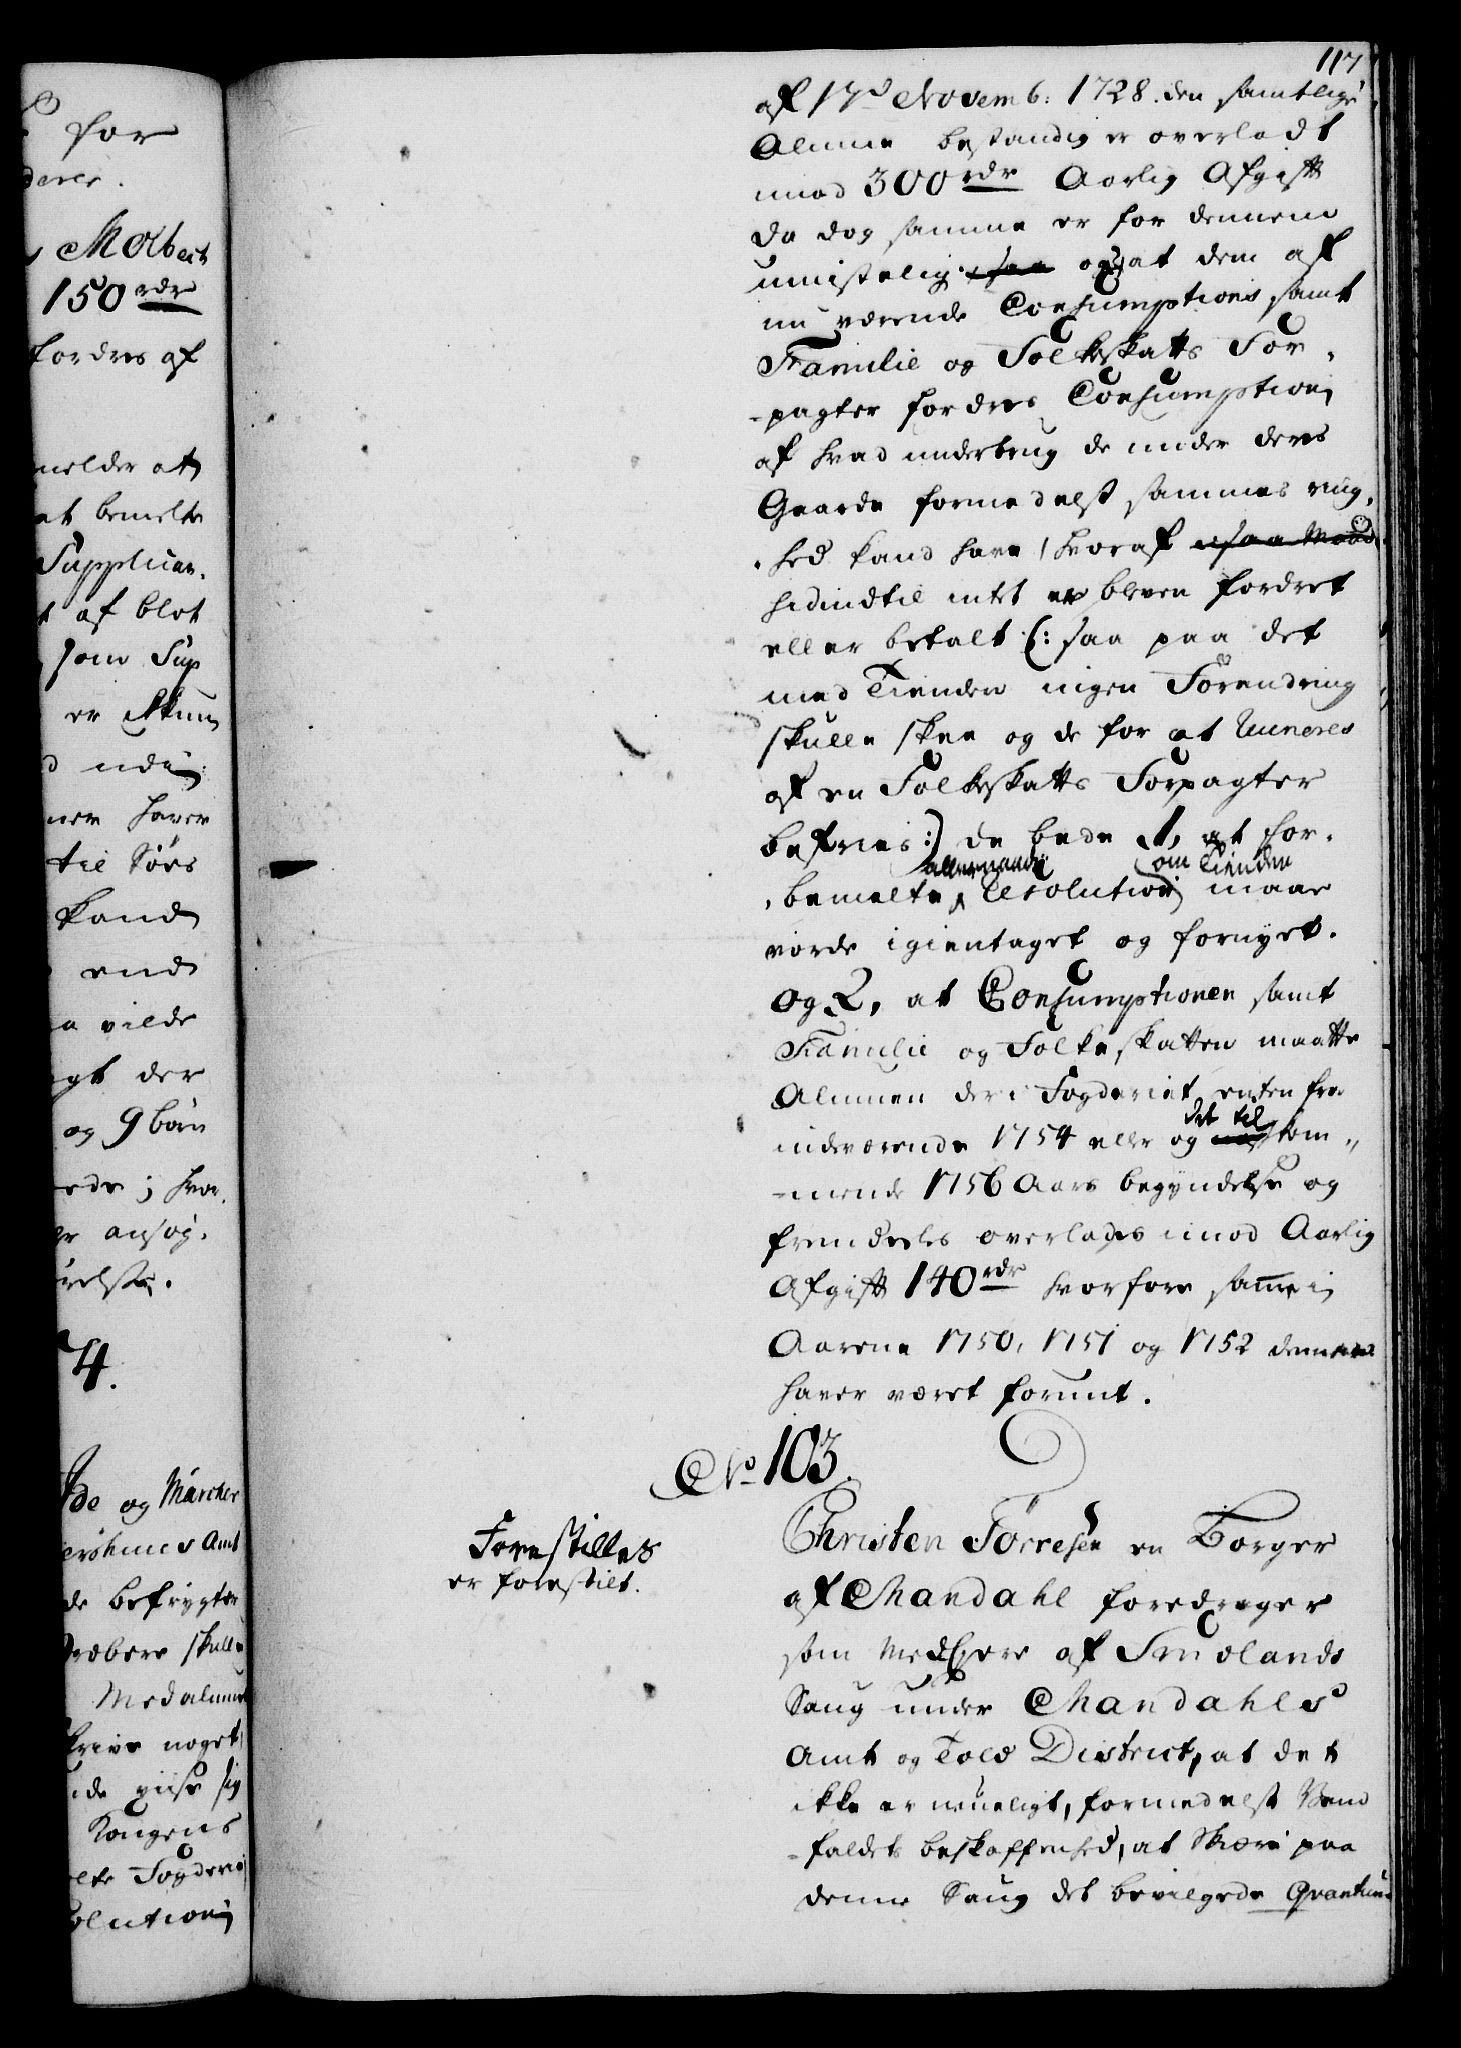 117
af 17d Novemb: 1728. den samtlige
Almue bestandig er overladt
mod 300 rdr Aarlig Afgift
da dog samme er for dennem
umistelig, saa og at dem af
nu værende Consumptions samt
Familie og Folkeskatts For-
-pagter fordres Consumption
af hvad underbrug de under deres
Gaarde formedelst sammes ring-
-hed kand have / hvoraf
hidindtil intet er bleven fordret
eller betalt (: saa paa det
med Tienden ingen Forandring
skulle skee og de for at ruineres
af en Folkeskatts Forpagter
befries :) de bede 1, at for-
-bemelte allernaad: Resolution om Tienden maae
vorde igientaget og fornyet.
Og 2, at Consumptionen samt
Familie og Folkeskatten maatte
Almuen der i Fogderiet enten fra
indeværende 1754 eller og det til kom-
-mende 1756 Aars begyndelse og
fremdeeles overlades imod Aarlig
Afgift 140 rdr hvorfore samme i
Aarene 1750, 1751 og 1752 dennem
haver været forunt.
No 103.
Forestilles
er forestilt.
Christen Torresen en Borger
af Mandahl foredrager
som Medeyere af Smedlands
Saug under Mandahls
Amt og Told District, at det
ikke er mueligt, formedelst Vand
-faldets beskaffenhed, at skiære paa
denne Saug det bevilgede Qvantum
for
derer.
Molbech
150 rdr
fordres af
melder at
at bemelte
Supplican-
t af blot
som Sup
er
d udi
ner haver
til Sørs
kand
end
a vilde
gt der
og 9 børn
ede; hvor-
ansøg-
relse.
4.
de og Marcker
ershuus Amt
de befrygter
skulle
Medalmue
krive noget
de viise sig
Kongens
elte Fogderie
olution